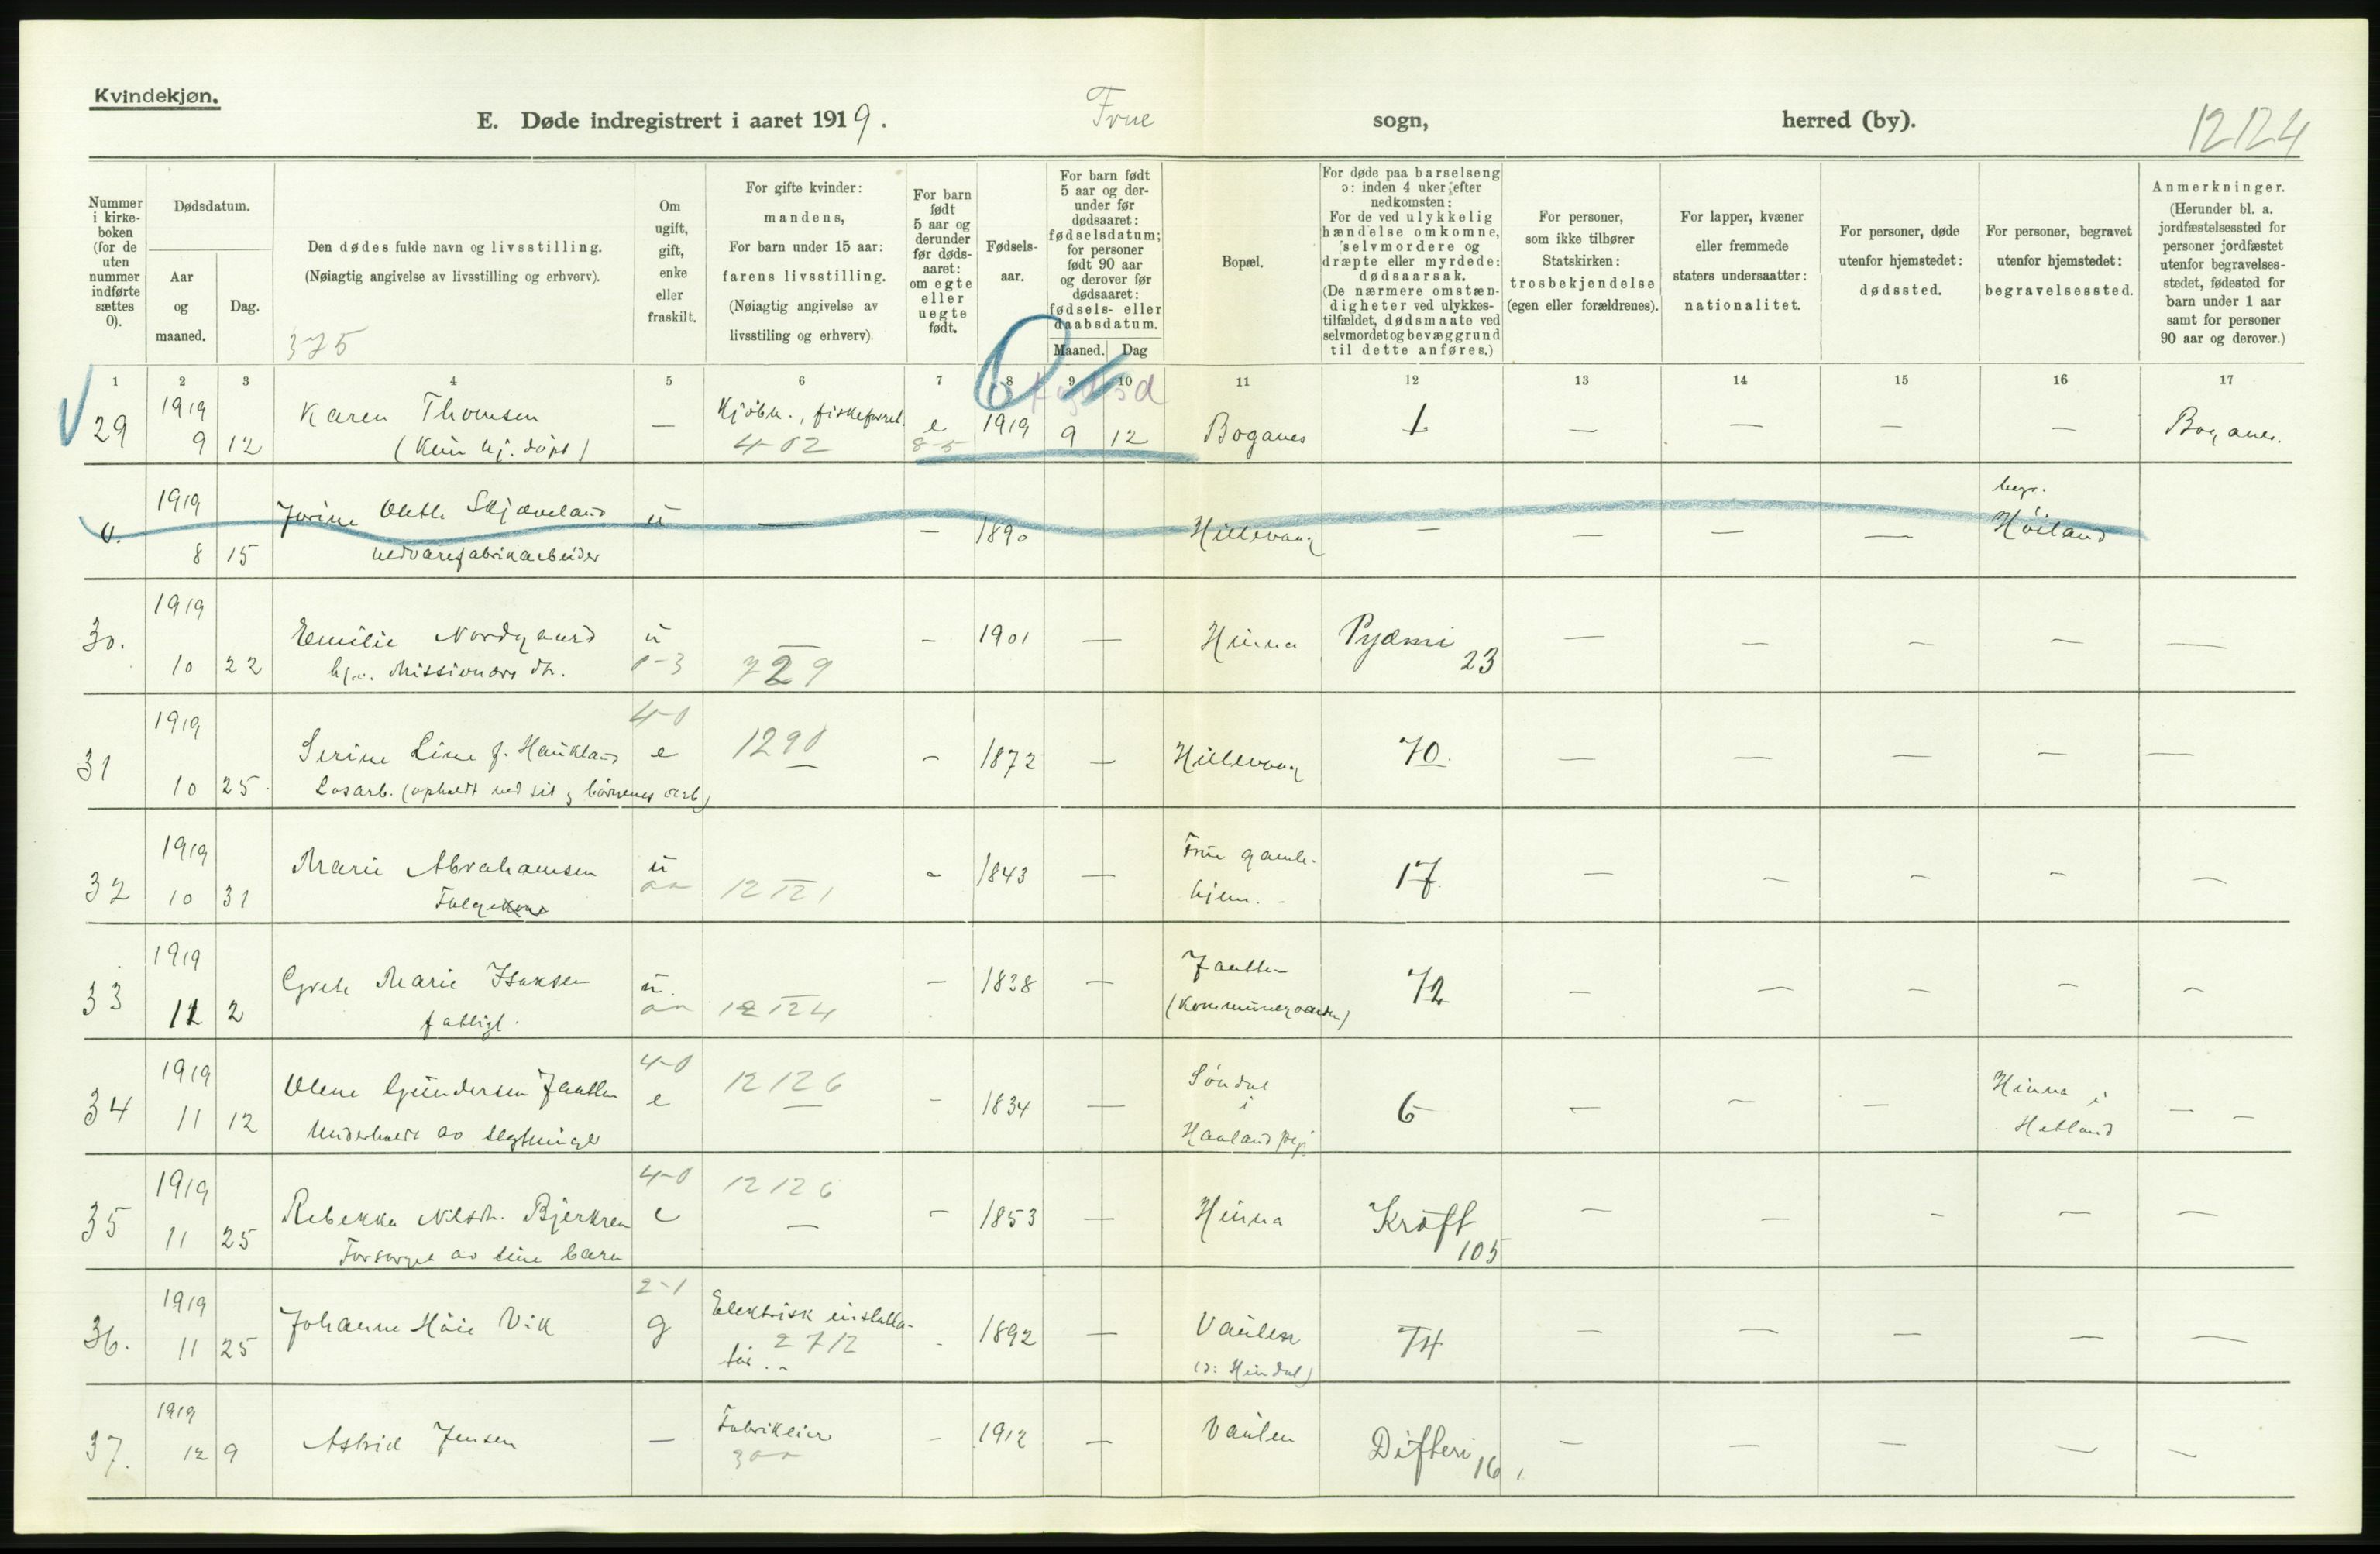 Kvindekjøn.
E. Døde indregistrert i aaret 1919. Frue sogn, herred (by). 12124
Nummer i kirkeboken (for de uten nummer indførte sættes 0).
Dødsdatum.
Aar og maaned.
Dag.
Den dødes fulde navn og livsstilling.
(Nøiagtig angivelse av livsstilling og erhverv).
375
Om ugift, gift, enke eller fraskilt.
For gifte kvinder: mandens,
For barn under 15 aar: farens livsstilling.
(Nøiagtig angivelse av livsstiling og erhverv).
For barn født 5 aar og derunder før dødsaaret: om egte eller uegte født.
Fødselsaar.
For barn født 5 aar og derunder før dødsaaret: fødselsdatum; for personer født 90 aar og derover før dødsaaret: fødsels- eller daabsdatum.
Maaned. Dag
Bopæl.
For døde paa barselseng ɔ: inden 4 uker efter nedkomsten:
For de ved ulykkelig hændelse omkomne, selvmordere og dræpte eller myrdede: dødsaarsak.
(De nærmere omstændigheter ved ulykkestilfældet, dødsmaate ved selvmordet og bevæggrund til dette anføres.)
For personer, som ikke tilhører Statskirken: trosbekjendelse (egen eller forældrenes).
For lapper, kvæner eller fremmede staters undersaatter: nationalitet.
For personer, døde utenfor hjemstedet: dødssted.
For personer, begravet utenfor hjemstedet: begravelsessted.
Anmerkninger.
(Herunder bl. a. jordfæstelsessted for personer jordfæstet utenfor begravelsesstedet, fødested for barn under 1 aar samt for personer 90 aar og derover.)
1 2 3 4 5 6 7 8 9 10 11 12 13 14 15 16 17
29 1919 9 12 Karen Thomsen — Kjøbm., e 1919 9 12 Boganes 1 — — — — Boganes.
(Kun hj. døpt) 4-02 8-5
0. 1919 8 15 Jorine Olette Skjæveland u — — 1890 Hillevaag — — — — begr. Höiland
nedvarefabrikarbeider
30. 1919 10 22 Emilie Nordgaard u — — 1901 — Hinna Pyæmi 23 — — — — —
hj. Missionærs dtr. 0-3 729
31 1919 10 25. Serine Line f. Haukland 4-0 e 1290 — — 1872 — Hillevaag 70. — — — — —
Løsarb. (opholdt ved sit og börnenes arb)
32 1919 10 31 Marie Abrahamsen u — 1843 — Frue gamle- 17 — — — — —
12121 hjem. -
33 1919 11 2 Grete Marie Isaksen u. — 1838 — Jaatten 72 — — — — —
fattigl. 12124 (Kommunegaarden)
34 1919 11 12 Olene Gundersen Jaatten 4-0 e 12126 — — 1834 — Söndal i Haaland 6 — — — Hinna i Hetland — —
Underholdt av slegtninge
35 1919 11 25 Rebekka Nilsdt. Bjerkren 4-0 e 12126 — — 1853 — Hinna Kræft 105 — — — — —
Forsørget av sine barn
36. 1919 11 25 Johanne Höie Vik 2-1 g Elektrisk installa- 1892 — Vaulen 74 — — — — —
tør. 2712 (ɔ: Hindal)
37. 1919 12 9 Astrid Jensen — Fabrikeier — 1912 — Vaulen Difteri 16 — — — — —
300